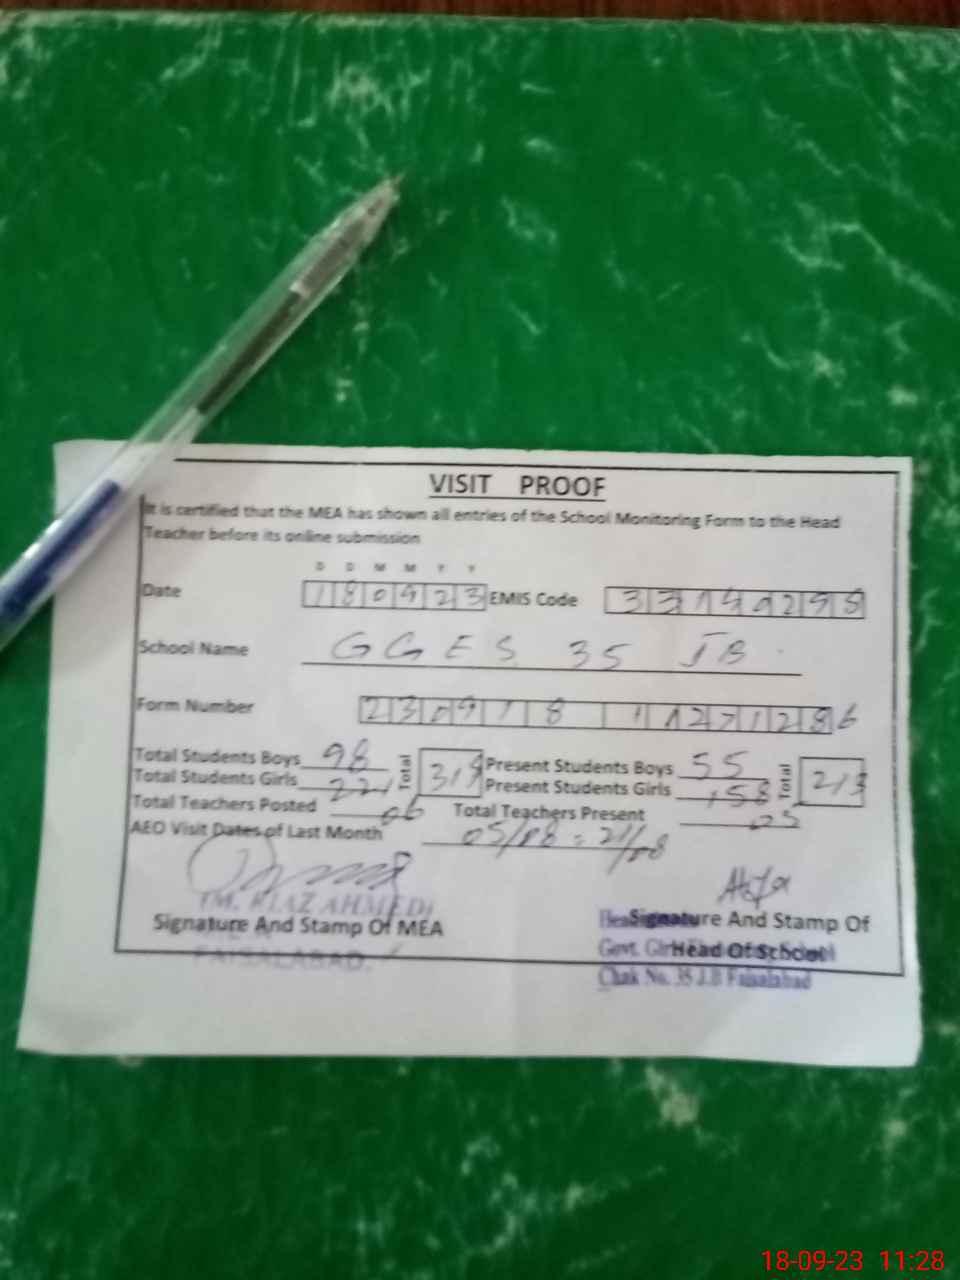 VISIT PROOF
It is certified that the MEA has shown all entries of the School Monitoring Form to the Head
Teacher before its online submission
D D M M Y Y
Date 180923 EMIS Code
School Name GGES 35 JB
Form Number
Total Students Boys 98 Total 319 Present Students Boys 55 Total 213
Total Students Girls 221 Present Students Girls 158
Total Teachers Posted 06 Total Teachers Present 05
AEO Visit Dates of Last Month 05/08 : 21/08
(M. RIAZ AHMED)
Signature And Stamp Of MEA
FAISALABAD.
Signature And Stamp Of
Head Of School
Govt. Girls School
Chak No. 35 J.B Faisalabad
18-09-23 11:28